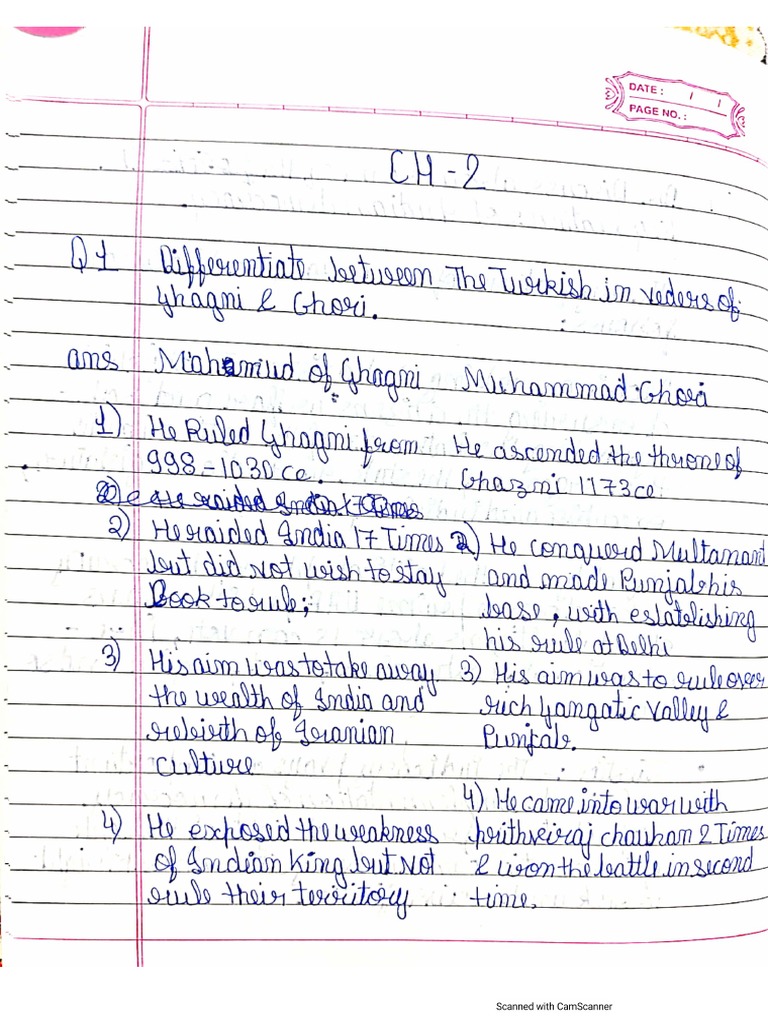 DATE : / /
PAGE NO. :
CH - 2
Q1 Differentiate between The Turkish in veders of
Ghagni & Ghori.
ans Mahemiud of Ghagni Muhammad Ghori
1) He Ruled Ghagni from He ascended the throne of
998 - 1030 ce. Ghazni 1173 ce.
2) He raided India 17 Times 2) He conquerd Multanant
but did not wish to stay and made Punjab his
Book to rule; base, with establishing
his rule at Delhi
3) His aim was to take away 3) His aim was to rule over
the wealth of India and rich Gangatic Valley &
rebirth of Iranian Punjab.
culture
4) He came into war with
4) He exposed the weakness prithveiraj chauhan 2 Times
of Indian King but not & won the battle in second
rule their territory. time.
Scanned with CamScanner